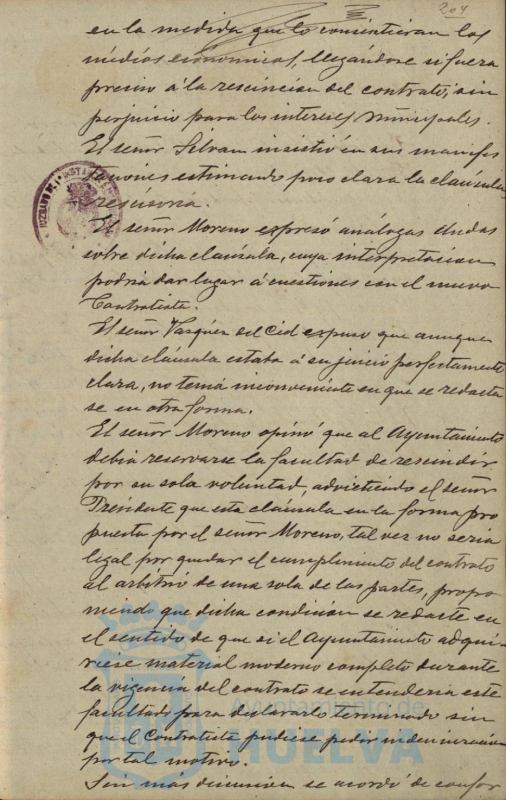 204
en la medida que lo consintieran los
medios económicos, llegándose si fuera
preciso á la rescincion del contrato, sin
perjuicio para los intereses municipales.
El señor Silvan insistió en sus manifes
taciones estimando poco clara la claúsula
rescisoria.
El señor Moreno expresó análogas dudas
sobre dicha claúsula, cuya interpretacion
podria dar lugar á cuestiones con el nuevo
Contratista.
El señor Vazquez del Cid expuso que aunque
dicha cláusula estaba á su juicio perfectamente
clara, no tenia inconveniente en que se redacta
se en otra forma.
El señor Moreno opinó que al Ayuntamiento
debia reservarse la facultad de rescindir
por su sola voluntad, advirtiendo el señor
Presidente que esta cláusula en la forma pro
puesta por el señor Moreno, tal vez no seria
legal por quedar el cumplimiento del contrato
al arbitrio de una sola de las partes, propo
niendo que dicha condicion se redacte en
el sentido de que si el Ayuntamiento adqui
riese material moderno completo durante
la vigencia del contrato se entenderia este
facultado para declararlo terminado sin
que el Contratista pudiese pedir indemnizacion
por tal motivo.
Sin más discusion se acordó de confor
Ayuntamiento de
HUELVA